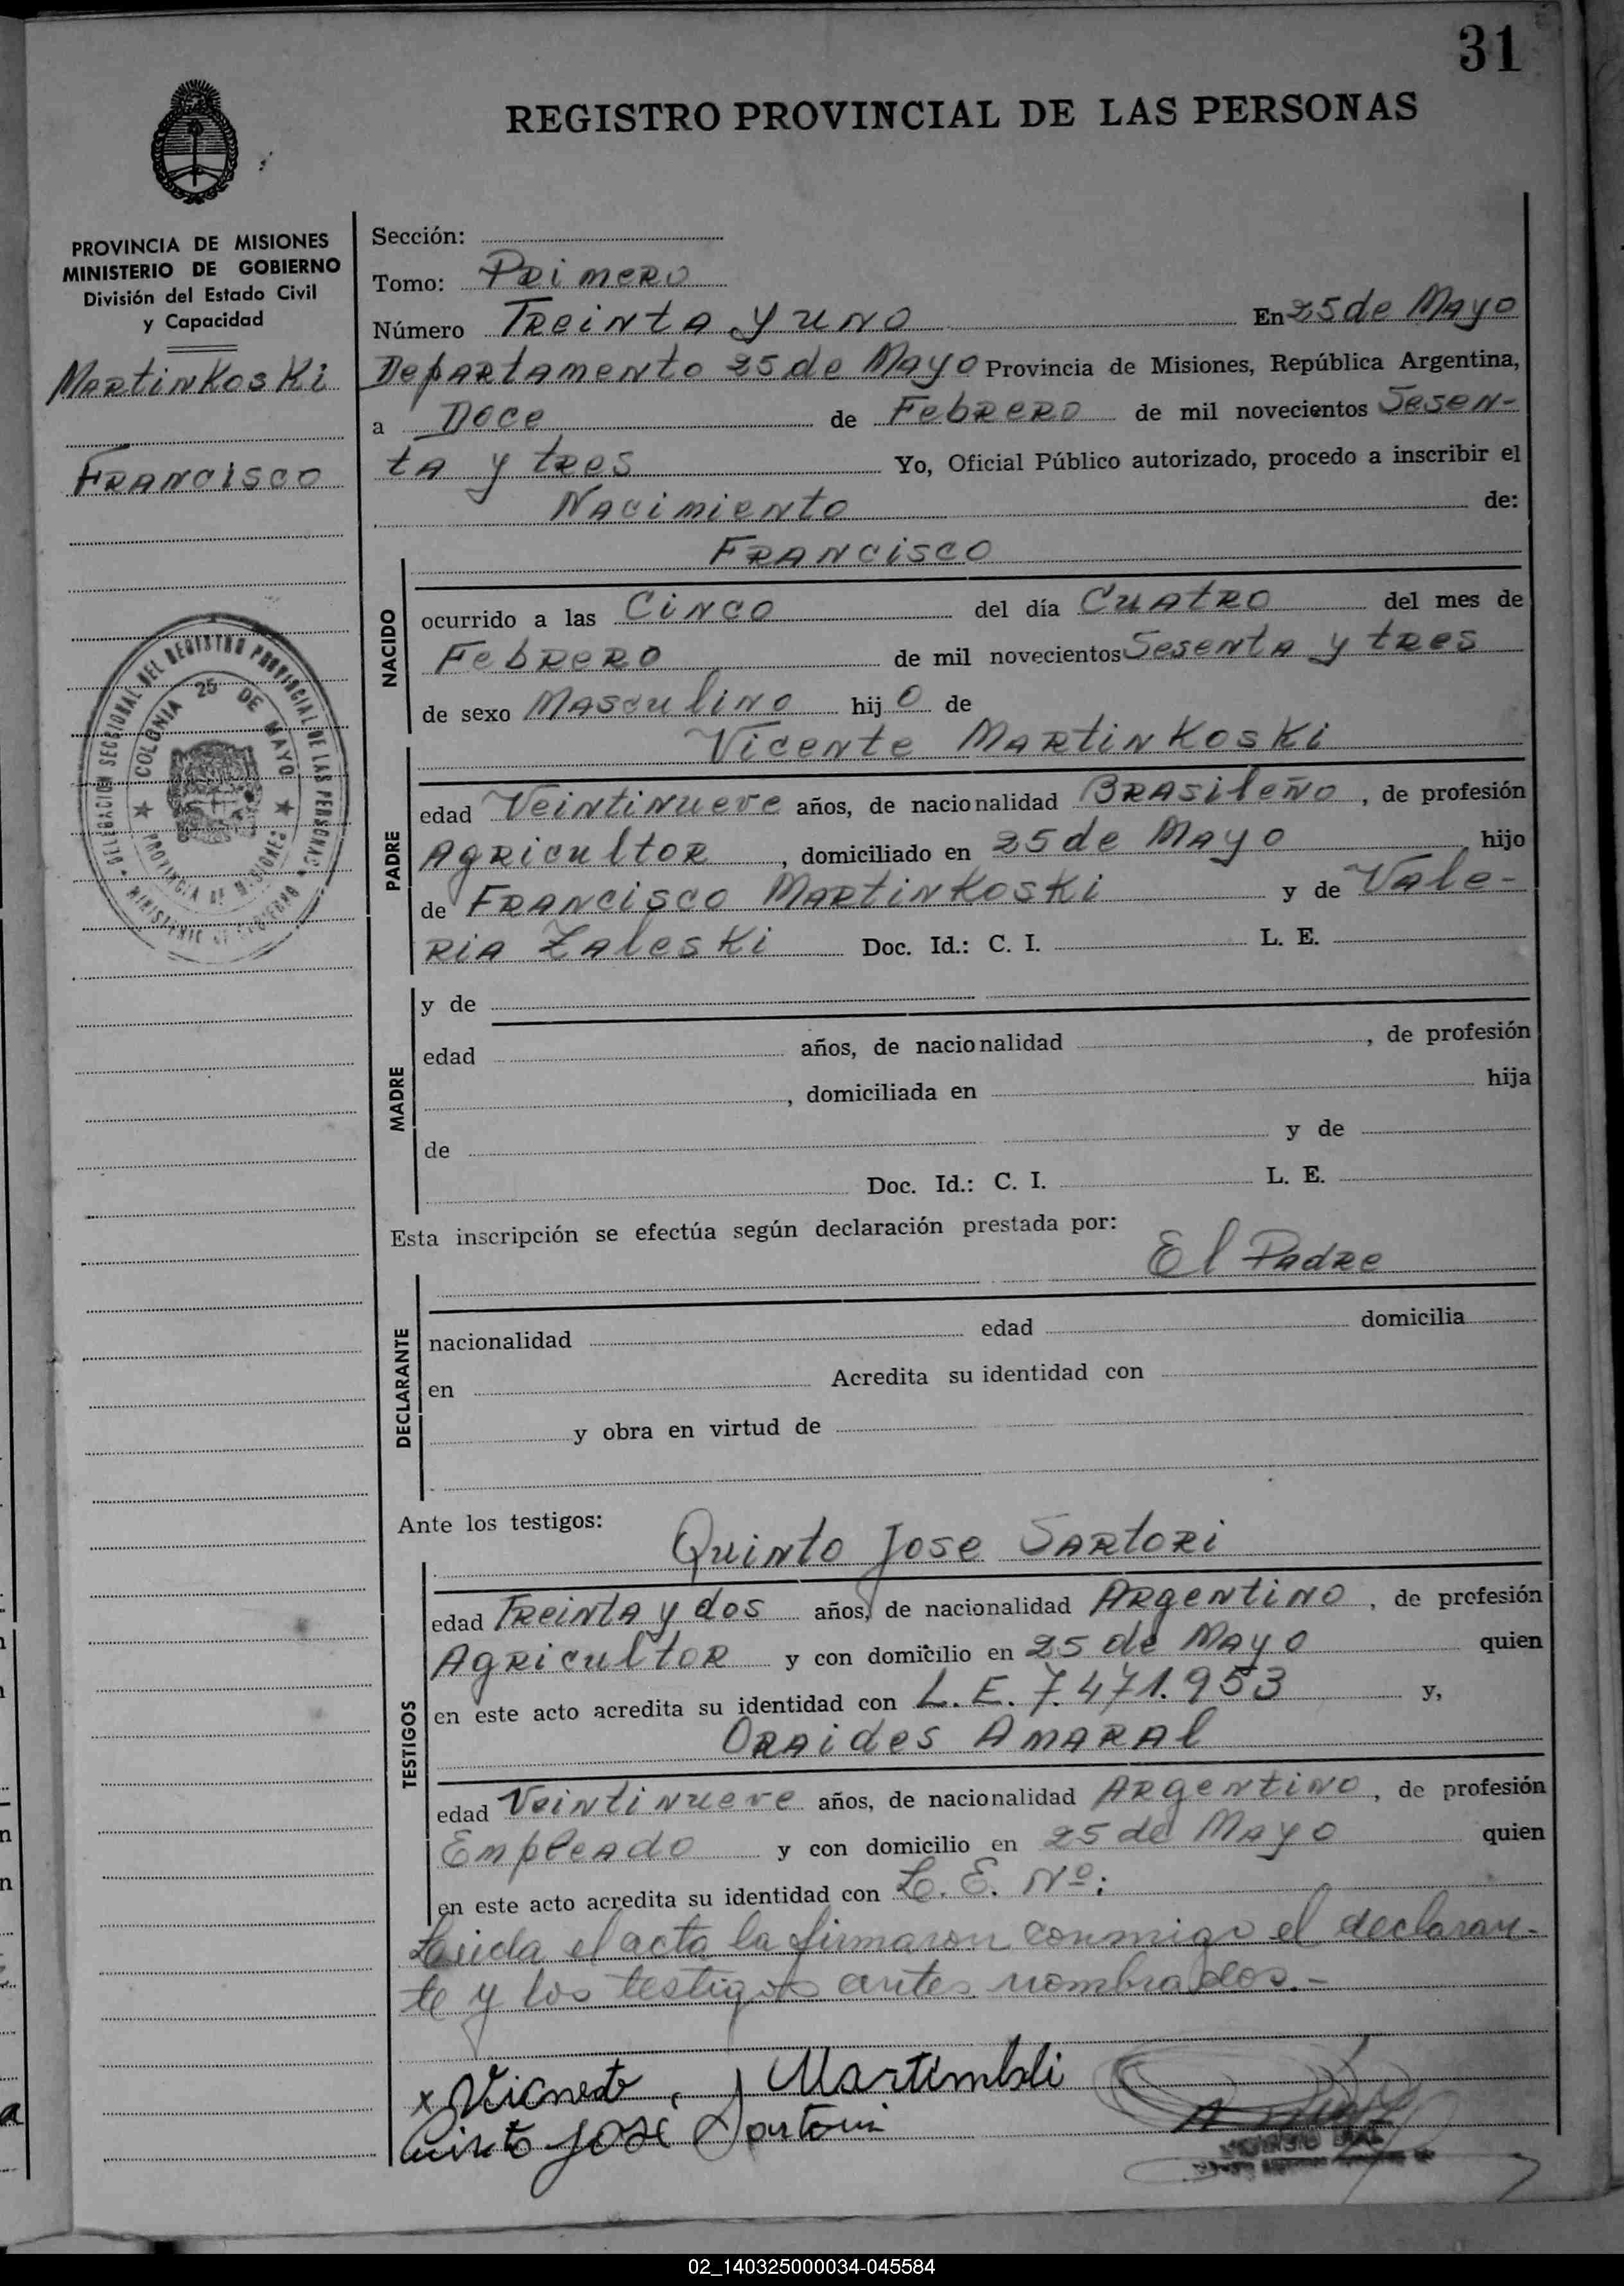 31
REGISTRO PROVINCIAL DE LAS PERSONAS
PROVINCIA DE MISIONES
MINISTERIO DE GOBIERNO
División del Estado Civil
y Capacidad
Martinkoski
Francisco
DELEGACION SECCIONAL DEL REGISTRO PROVINCIAL DE LAS PERSONAS
COLONIA 25 DE MAYO
PROVINCIA DE MISIONES
MINISTERIO DE GOBIERNO
Sección:
Tomo: Primero
Número Treinta y uno En 25 de Mayo
Departamento 25 de Mayo Provincia de Misiones, República Argentina,
a Doce de Febrero de mil novecientos Sesen-
ta y tres Yo, Oficial Público autorizado, procedo a inscribir el
Nacimiento de:
Francisco
NACIDO
ocurrido a las Cinco del día Cuatro del mes de
Febrero de mil novecientos Sesenta y tres
de sexo Masculino hij o de
Vicente Martinkoski
PADRE
edad Veintinueve años, de nacionalidad Brasileño, de profesión
Agricultor, domiciliado en 25 de Mayo hijo
de Francisco Martinkoski y de Vale-
ria Zaleski Doc. Id.: C. I. L. E.
MADRE
y de
edad años, de nacionalidad , de profesión
, domiciliada en hija
de y de
Doc. Id.: C. I. L. E.
Esta inscripción se efectúa según declaración prestada por:
El Padre
DECLARANTE
nacionalidad edad domicilia
en Acredita su identidad con
y obra en virtud de
Ante los testigos:
Quinto Jose Sartori
TESTIGOS
edad Treinta y dos años, de nacionalidad Argentino, de profesión
Agricultor y con domicilio en 25 de Mayo quien
en este acto acredita su identidad con L. E. 7.471.953 y,
Oraides Amaral
edad Veintinueve años, de nacionalidad Argentino, de profesión
Empleado y con domicilio en 25 de Mayo quien
en este acto acredita su identidad con L. E. Nº:
Leida el acta la firmaron conmigo el declaran-
te y los testigos antes nombrados.-
x
Quinto José Sartori
02_140325000034-045584